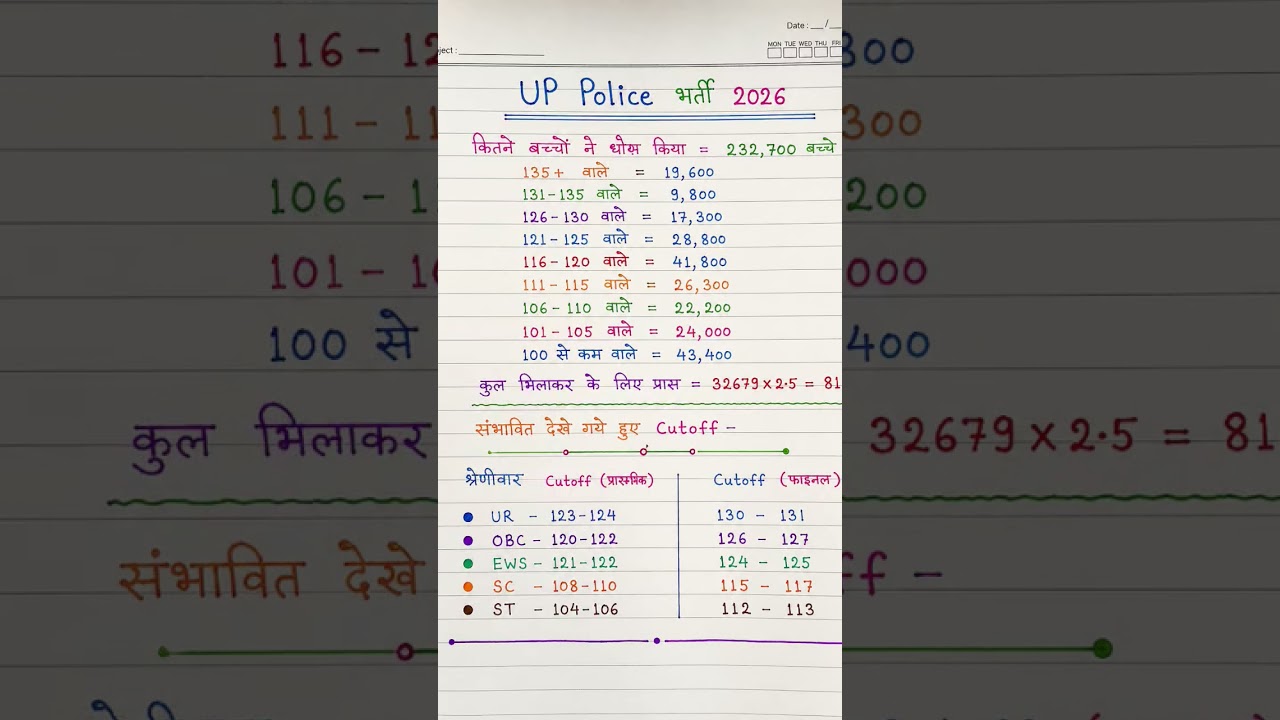 Date : __/__
ject : ______
MON TUE WED THU FRI
UP Police भर्ती 2026
कितने बच्चों ने धोस किया = 232,700 बच्चे
135+ वाले = 19,600
131-135 वाले = 9,800
126-130 वाले = 17,300
121-125 वाले = 28,800
116-120 वाले = 41,800
111-115 वाले = 26,300
106-110 वाले = 22,200
101-105 वाले = 24,000
100 से कम वाले = 43,400
कुल भिलाकर के लिए प्रास = 32679×2·5 = 81
संभावित देखे गये हुए Cutoff -
श्रेणीवार Cutoff Cutoff (फाइनल)
UR - 123-124 130 - 131
OBC - 120-122 126 - 127
EWS - 121-122 124 - 125
SC - 108-110 115 - 117
ST - 104-106 112 - 113